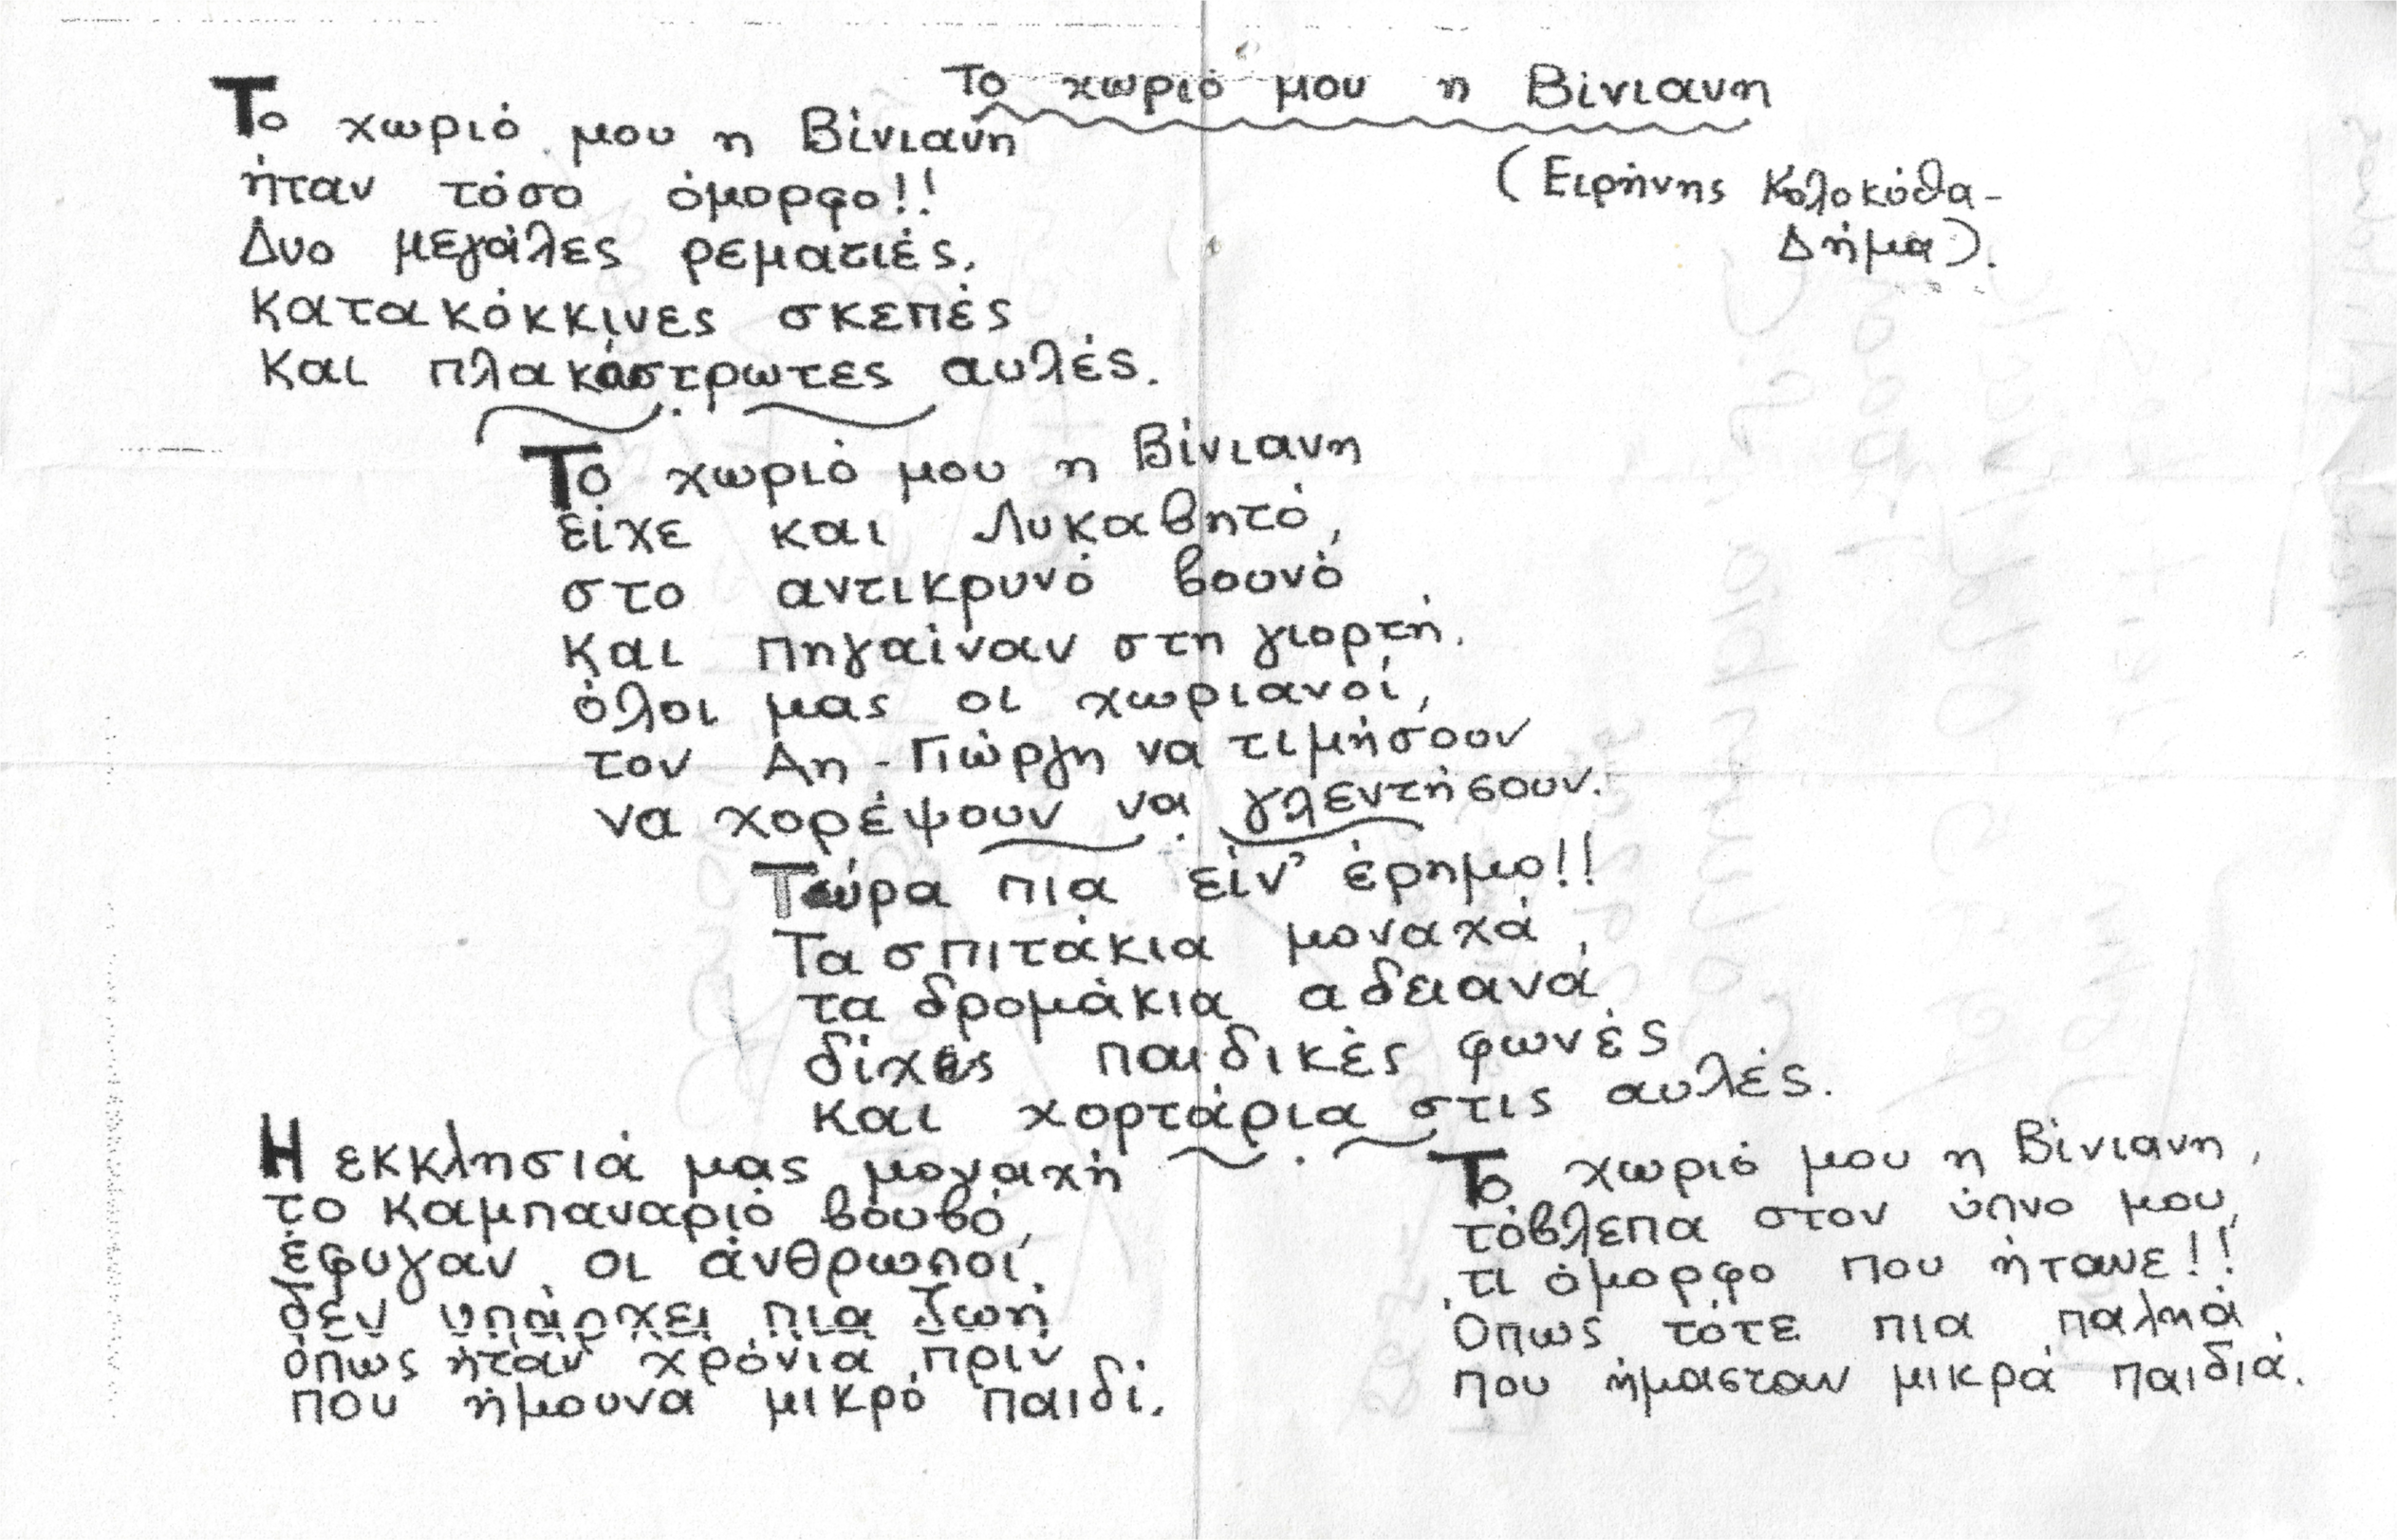 Το χωριό μου η Βίνιανη
(Ειρήνης Κολοκύθα-
Δήμα).
Το χωριό μου η Βίνιανη
ήταν τόσο όμορφο!!
Δυο μεγάλες ρεματιές,
κατακόκκινες σκεπές
και πλακόστρωτες αυλές.
Το χωριό μου η Βίνιανη
είχε και Λυκαβητό,
στο αντικρυνό βουνό
και πηγαίναν στη γιορτή.
όλοι μας οι χωριανοί,
τον Αη-Γιώργη να τιμήσουν
να χορέψουν να γλεντήσουν.
Τώρα πια είν' έρημο!!
Τα σπιτάκια μοναχά,
τα δρομάκια αδειανά
δίχως παιδικές φωνές
και χορτάρια στις αυλές.
Η εκκλησιά μας μοναχή
το καμπαναριό βουβό,
έφυγαν οι άνθρωποι,
δεν υπάρχει πια ζωή
όπως ήταν χρόνια πριν
που ήμουνα μικρό παιδί.
Το χωριό μου η Βίνιανη,
τόβλεπα στον ύπνο μου,
τι όμορφο που ήτανε!!
Όπως τότε πια παληά
που ήμασταν μικρά παιδιά.